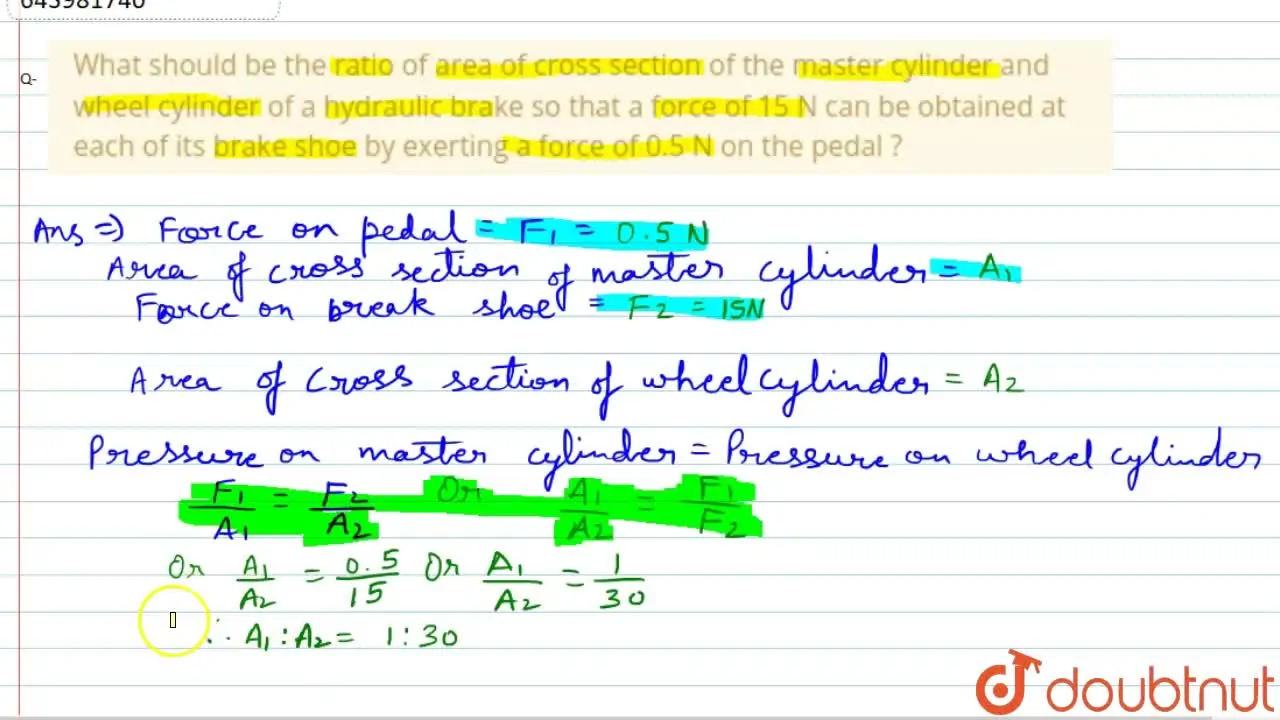 643981740
Q-
What should be the ratio of area of cross section of the master cylinder and
wheel cylinder of a hydraulic brake so that a force of 15 N can be obtained at
each of its brake shoe by exerting a force of 0.5 N on the pedal ?
Ans => Force on pedal = F1 = 0.5 N
Area of cross section of master cylinder = A1
Force on break shoe = F2 = 15N
Area of cross section of wheel cylinder = A2
Pressure on master cylinder = Pressure on wheel cylinder
F1/A1 = F2/A2 Or A1/A2 = F1/F2
Or A1/A2 = 0.5/15 Or A1/A2 = 1/30
∴ A1 : A2 = 1 : 30
doubtnut